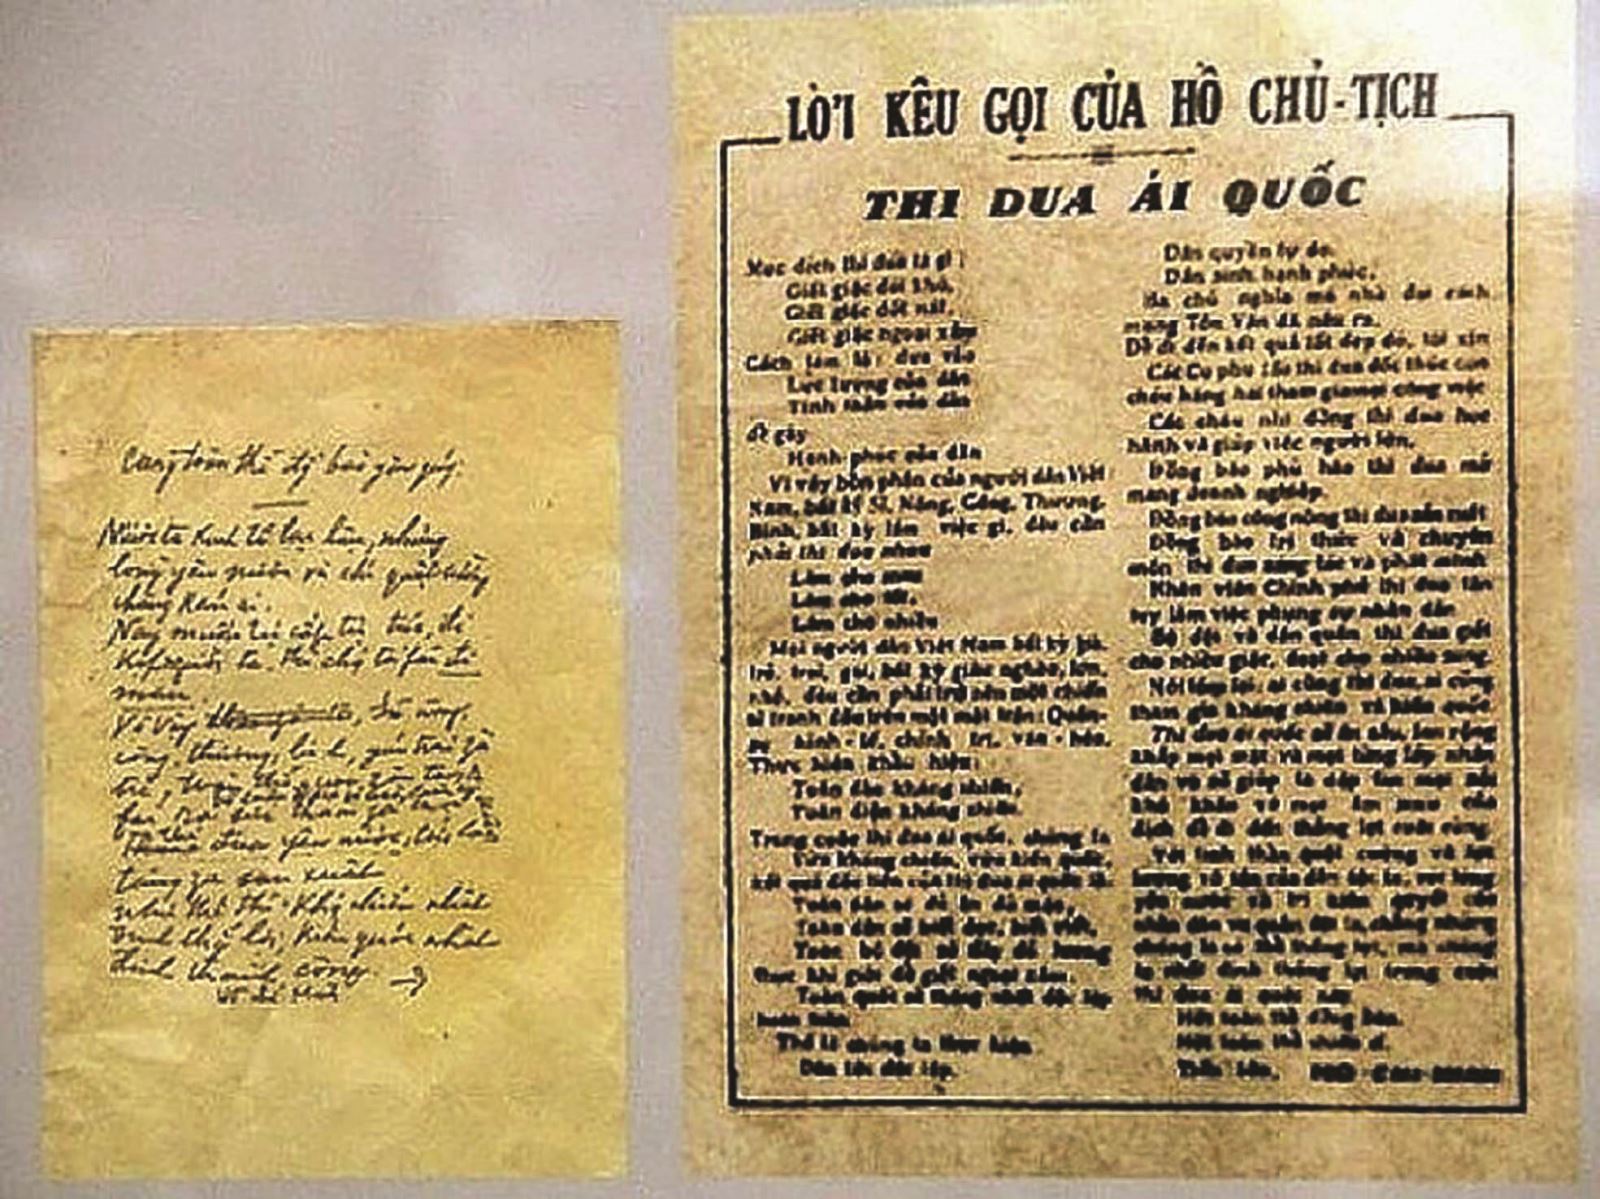 Cùng toàn thể đồng bào yêu quý,
Nước ta kinh tế lạc hậu, nhưng
lòng yêu nước và chí quật cường
chẳng kém ai.
Nay muốn
mau.
Vì vậy
công, thương, binh, gái trai già
trẻ,
đua yêu nước,
tăng gia sản xuất
như thế thì kháng chiến nhất
định thắng lợi, kiến quốc nhất
định thành công.
LỜI KÊU GỌI CỦA HỒ CHỦ-TỊCH
THI DUA ÁI QUỐC
Mục đích thi đua là gì :
Giết giặc đói khổ,
Giết giặc dốt nát,
Giết giặc ngoại xâm
Cách làm là: dựa vào
Lực lượng của dân
Tinh thần của dân
để gây
Hạnh phúc của dân
Vì vậy bổn phận của người dân Việt
Nam, bất kỳ Sĩ, Nông, Công, Thương,
Binh, bất kỳ làm việc gì, đều cần
phải thi đua nhau
Làm cho mau
Làm cho tốt,
Làm cho nhiều
Mọi người dân Việt Nam bất kỳ già,
trẻ, trai, gái, bất kỳ giàu nghèo, lớn,
nhỏ, đều cần phải trở nên một chiến
sĩ tranh đấu trên một mặt trận: Quân-
sự kinh-tế, chính trị, văn-hóa,
Thực hiện khẩu hiệu:
Toàn dân kháng chiến,
Toàn diện kháng chiến.
Trong cuộc thi đua ái quốc, chúng ta
Vừa kháng chiến, vừa kiến quốc,
kết quả đầu tiên của thi đua ái quốc là:
Toàn dân sẽ đủ ăn đủ mặc,
Toàn dân sẽ biết đọc, biết viết,
Toàn bộ đội sẽ đầy đủ lương
thực khí giới để giết ngoại xâm,
Toàn quốc sẽ thống nhất độc lập
hoàn toàn
Thế là chúng ta thực hiện
Dân tộc độc lập,
Dân quyền tự do.
Dân sinh hạnh phúc,
Ba chủ nghĩa mà nhà đại cách
mạng Tôn Văn đã nêu ra.
Để đi đến kết quả tốt đẹp đó, tôi xin
Các Cụ phụ lão thi đua đốc thúc con
cháu hăng hái tham gia mọi công việc
Các cháu nhi đồng thi đua học
hành và giúp việc người lớn.
Đồng bào phú hào thi đua mở
mang doanh nghiệp.
Đồng bào công nông thi đua sản xuất
Đồng bào trí thức và chuyên
môn thi đua sáng tác và phát minh
Nhân viên Chính phủ thi đua tận
tụy làm việc phụng sự nhân dân
Bộ đội và dân quân thi đua giết
cho nhiều giặc, đoạt cho nhiều súng.
Nói tóm lại, ai cũng thi đua, ai cũng
tham gia kháng chiến và kiến quốc.
Thi đua ái quốc sẽ ăn sâu, lan rộng
khắp mọi mặt và mọi tầng lớp nhân
dân và sẽ giúp ta dập tan mọi nỗi
khó khăn và mọi âm mưu của
địch để đi đến thắng lợi cuối cùng.
Với tinh thần quật cường và lực
lượng vô tận của dân tộc ta, với lòng
yêu nước và chí kiên quyết của
nhân dân và quân đội ta, chẳng những
chúng ta có thể thắng lợi, mà chúng
ta nhất định thắng lợi trong cuộc
thi đua ái quốc này
Hỡi toàn thể đồng bào.
Hỡi toàn thể chiến sĩ.
Tiến lên.